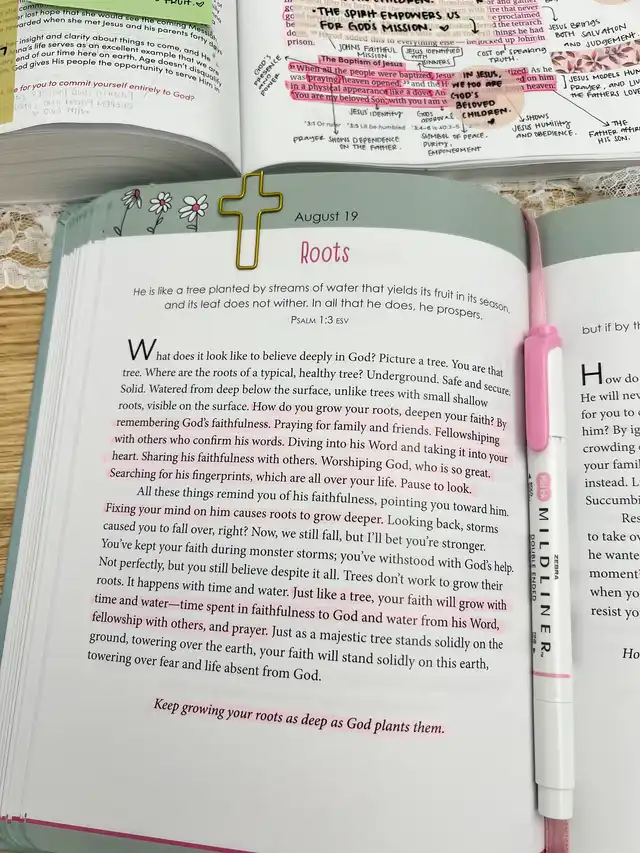 FRUIT.
hope that she would see the coming Mess
when she met Jesus and his parents forty days
insight and clarity about things to come, and He
life serves as an excellent example that we
end of our time here on earth. Age doesn't disqua
God gives His people the opportunity to serve Him in
for you to commit yourself entirely to God?
CHILDREN.
• THE SPIRIT EMPOWERS US
FOR GOD'S MISSION.
prison.
JOHN'S FAITHFUL
MISSION.
JESUS IDENTIFIED
WITH
SINNERS
COST OF SPEAKING
TRUTH.
JESUS BRINGS
BOTH SALVATION
AND JUDGEMENT.
The Baptism of Jesus
When all the people were baptized, Jesus
was praying, heaven opened, 22 and the
in a physical appearance like a dove
"You are my beloved Son; with you I am
IN JESUS,
WE TOO ARE
GOD'S
BELOVED
CHILDREN.
GOD'S
PRESENCE
POWER
JESUS MODELS HUM
PRAYER, AND LIV
THE FATHERS LOVE
JESUS IDENTITY
GODS
APPROVAL
PRAYER SHOWS DEPENDENCE
ON THE FATHER.
SYMBOL OF PEACE,
PURITY,
EMPOWERMENT
SHOWS
JESUS HUMILITY
AND OBEDIENCE.
THE
FATHER AFFIR
HIS SON.
August 19
Roots
He is like a tree planted by streams of water that yields its fruit in its season,
and its leaf does not wither. In all that he does, he prospers.
PSALM 1:3 ESV
What does it look like to believe deeply in God? Picture a tree. You are that
tree. Where are the roots of a typical, healthy tree? Underground. Safe and secure.
Solid. Watered from deep below the surface, unlike trees with small shallow
roots, visible on the surface. How do you grow your roots, deepen your faith? By
remembering God's faithfulness. Praying for family and friends. Fellowshiping
with others who confirm his words. Diving into his Word and taking it into your
heart. Sharing his faithfulness with others. Worshiping God, who is so great.
Searching for his fingerprints, which are all over your life. Pause to look.
All these things remind you of his faithfulness, pointing you toward him.
Fixing your mind on him causes roots to grow deeper. Looking back, storms
caused you to fall over, right? Now, we still fall, but I'll bet you're stronger.
You've kept your faith during monster storms; you've withstood with God's help.
Not perfectly, but you still believe despite it all. Trees don't work to grow their
roots. It happens with time and water. Just like a tree, your faith will grow with
time and water—time spent in faithfulness to God and water from his Word,
fellowship with others, and prayer. Just as a majestic tree stands solidly on the
ground, towering over the earth, your faith will stand solidly on this earth,
towering over fear and life absent from God.
Keep growing your roots as deep as God plants them.
ZEBRA
MILDLINER
DOUBLE ENDED
but if by th
How do
He will nev
for you to
him? By ig
crowding
your famil
instead. L
Succumbi
Res
to take ov
he wante
moment
when yo
resist yo
Ho